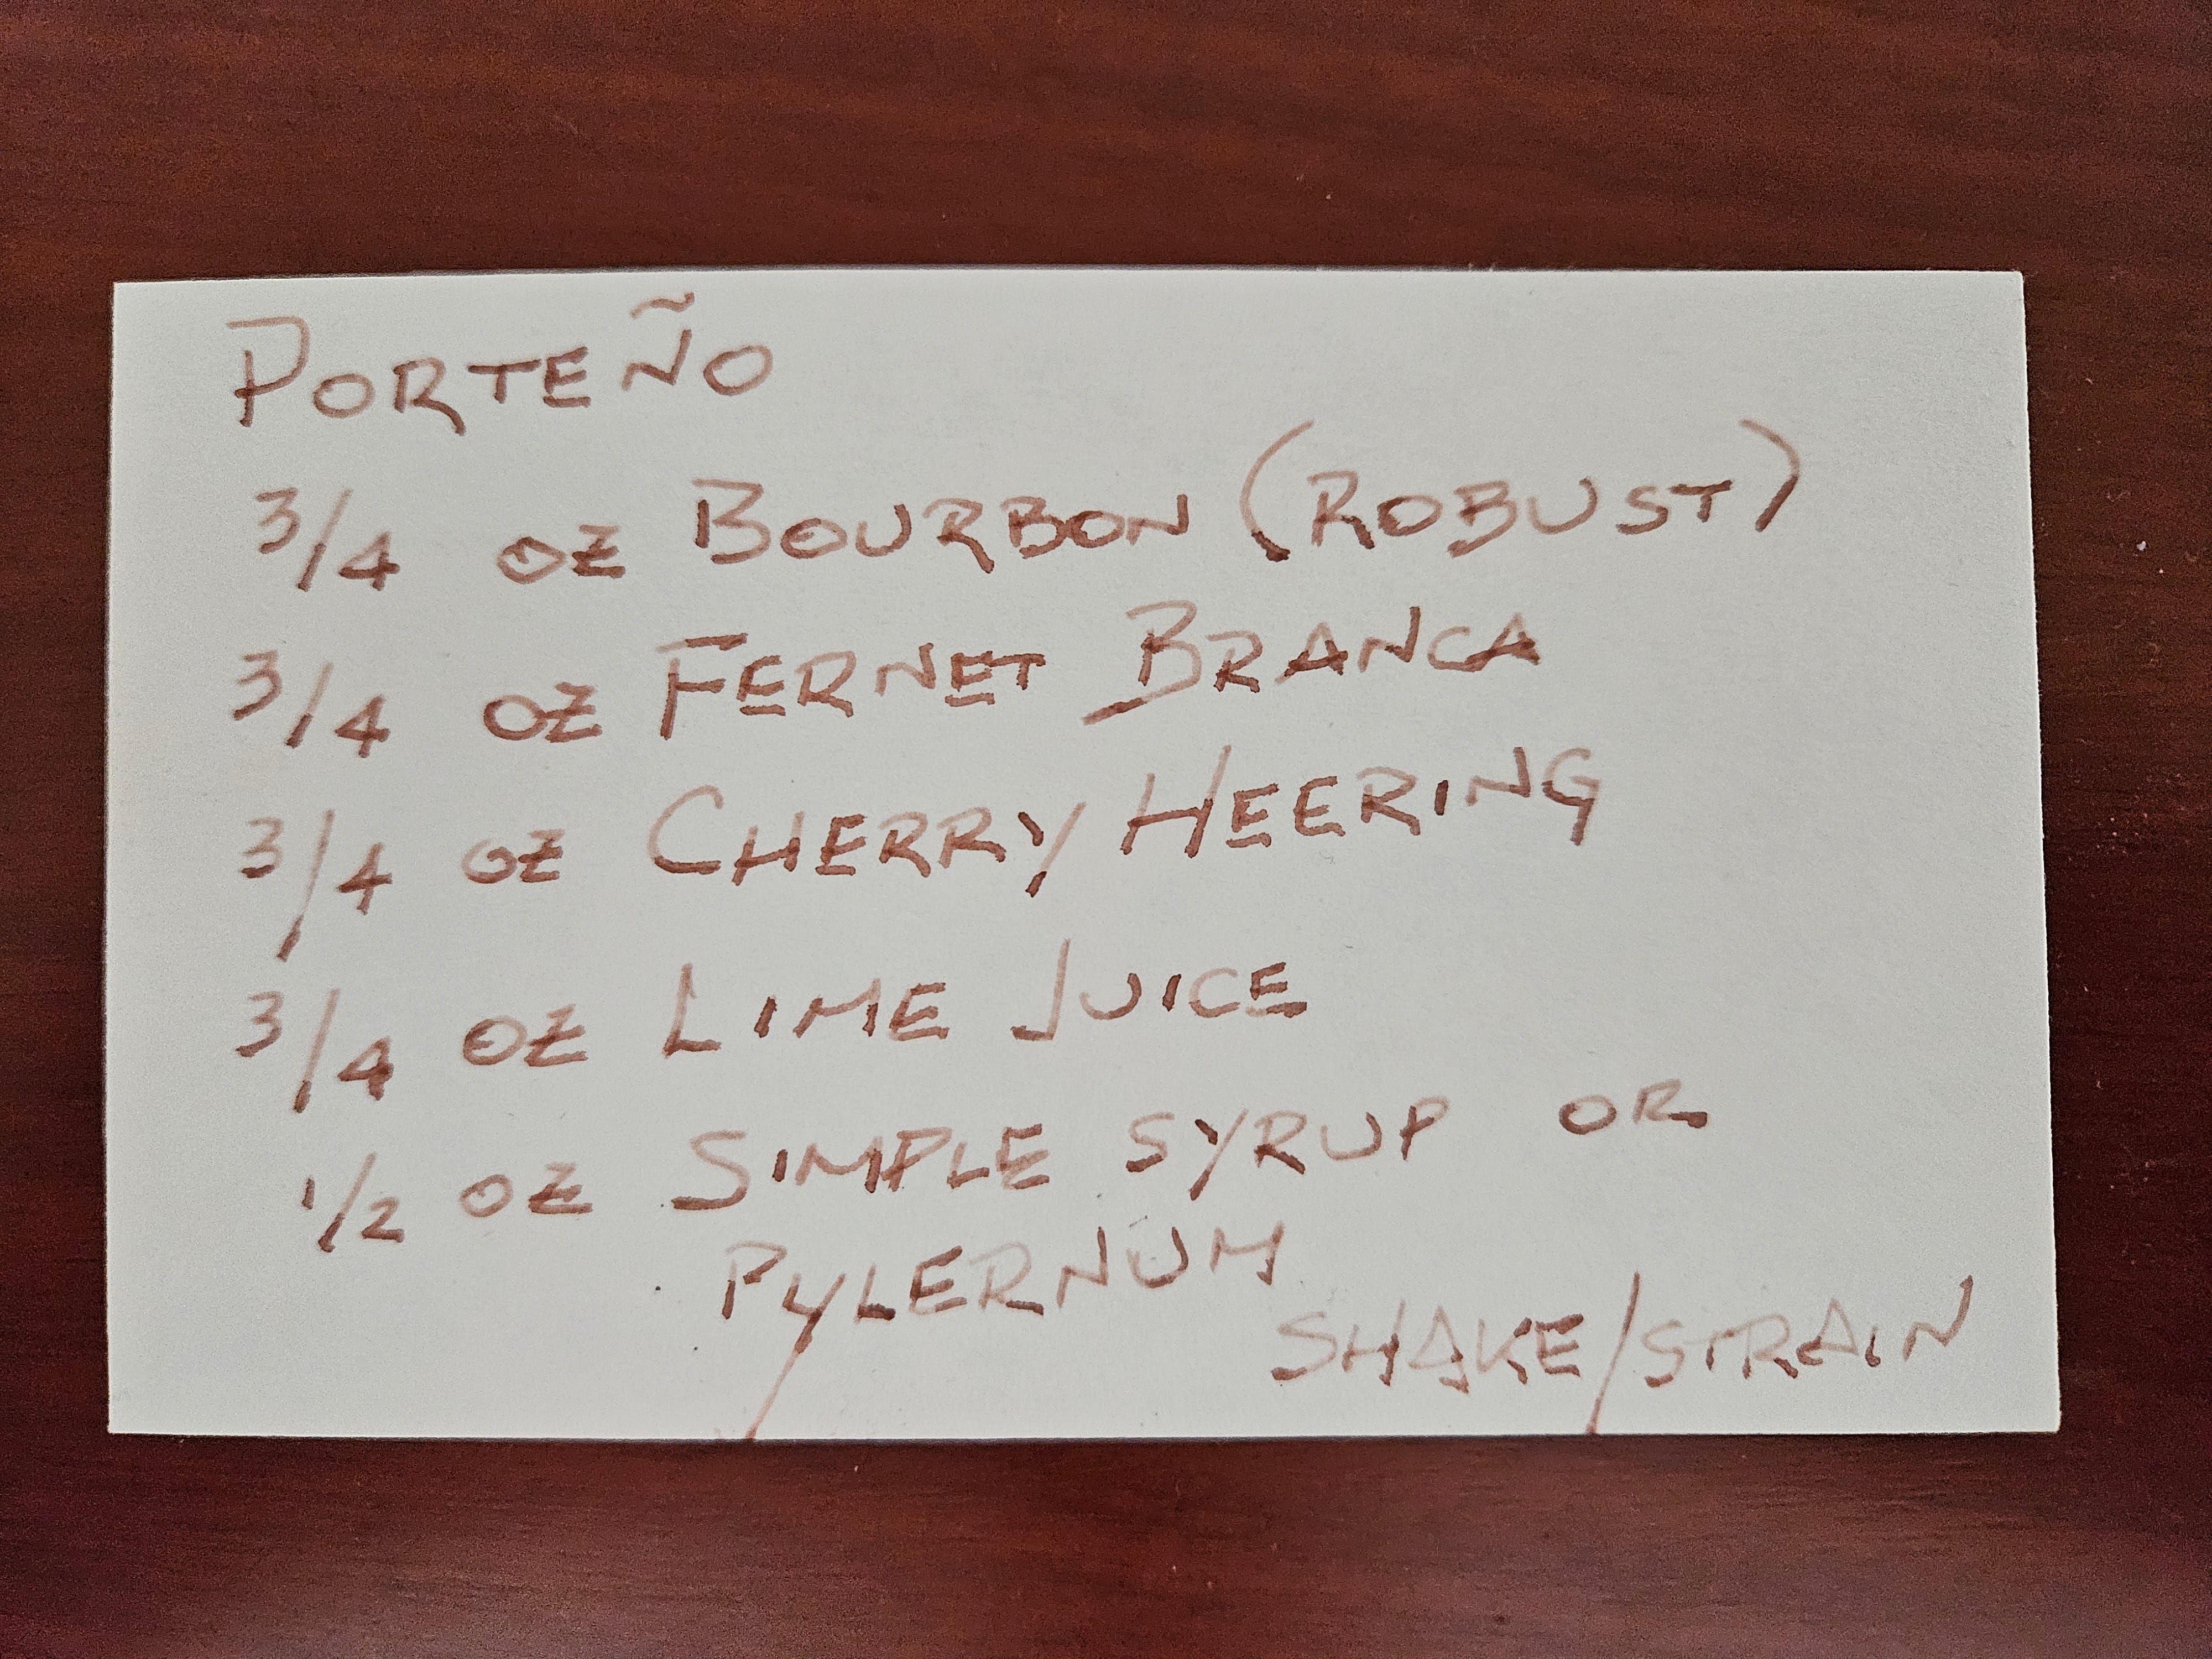 PORTEÑO
3/4 OZ BOURBON (ROBUST)
3/4 OZ FERNET BRANCA
3/4 OZ CHERRY HEERING
3/4 OZ LIME JUICE
1/2 OZ SIMPLE SYRUP OR
PYLERNUM
SHAKE/STRAIN